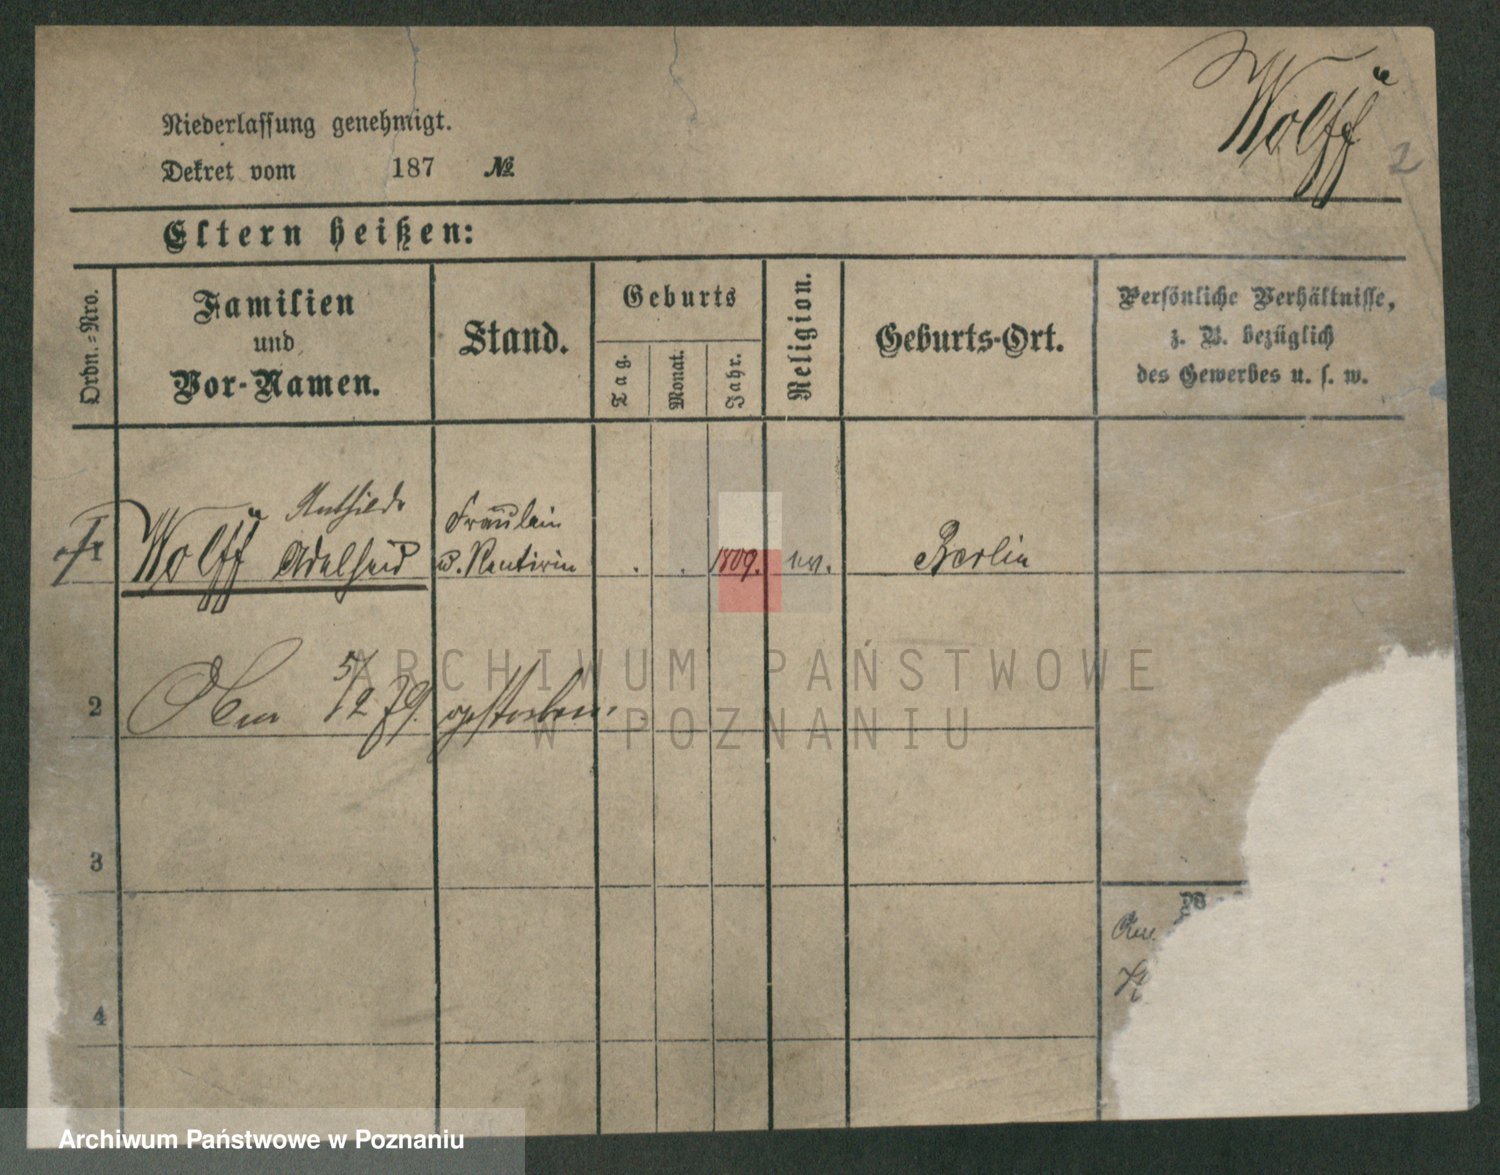 Wolff
2
Niederlassung genehmigt.
Dekret vom 187 №
Eltern heißen:
Ordn.-Nro.
Familien
und
Vor-Namen.
Stand.
Geburts
Tag.
Monat.
Jahr.
Religion.
Geburts-Ort.
Persönliche Verhältnisse,
z. B. bezüglich
des Gewerbes u. s. w.
1 Wolff Mathilde Adelheid
Fräulein
u. Rentirin
. . 1809. ev. Berlin
2 Am 5/2 79. gestorben.
3
4
ARCHIWUM PAŃSTWOWE
W POZNANIU
Archiwum Państwowe w Poznaniu